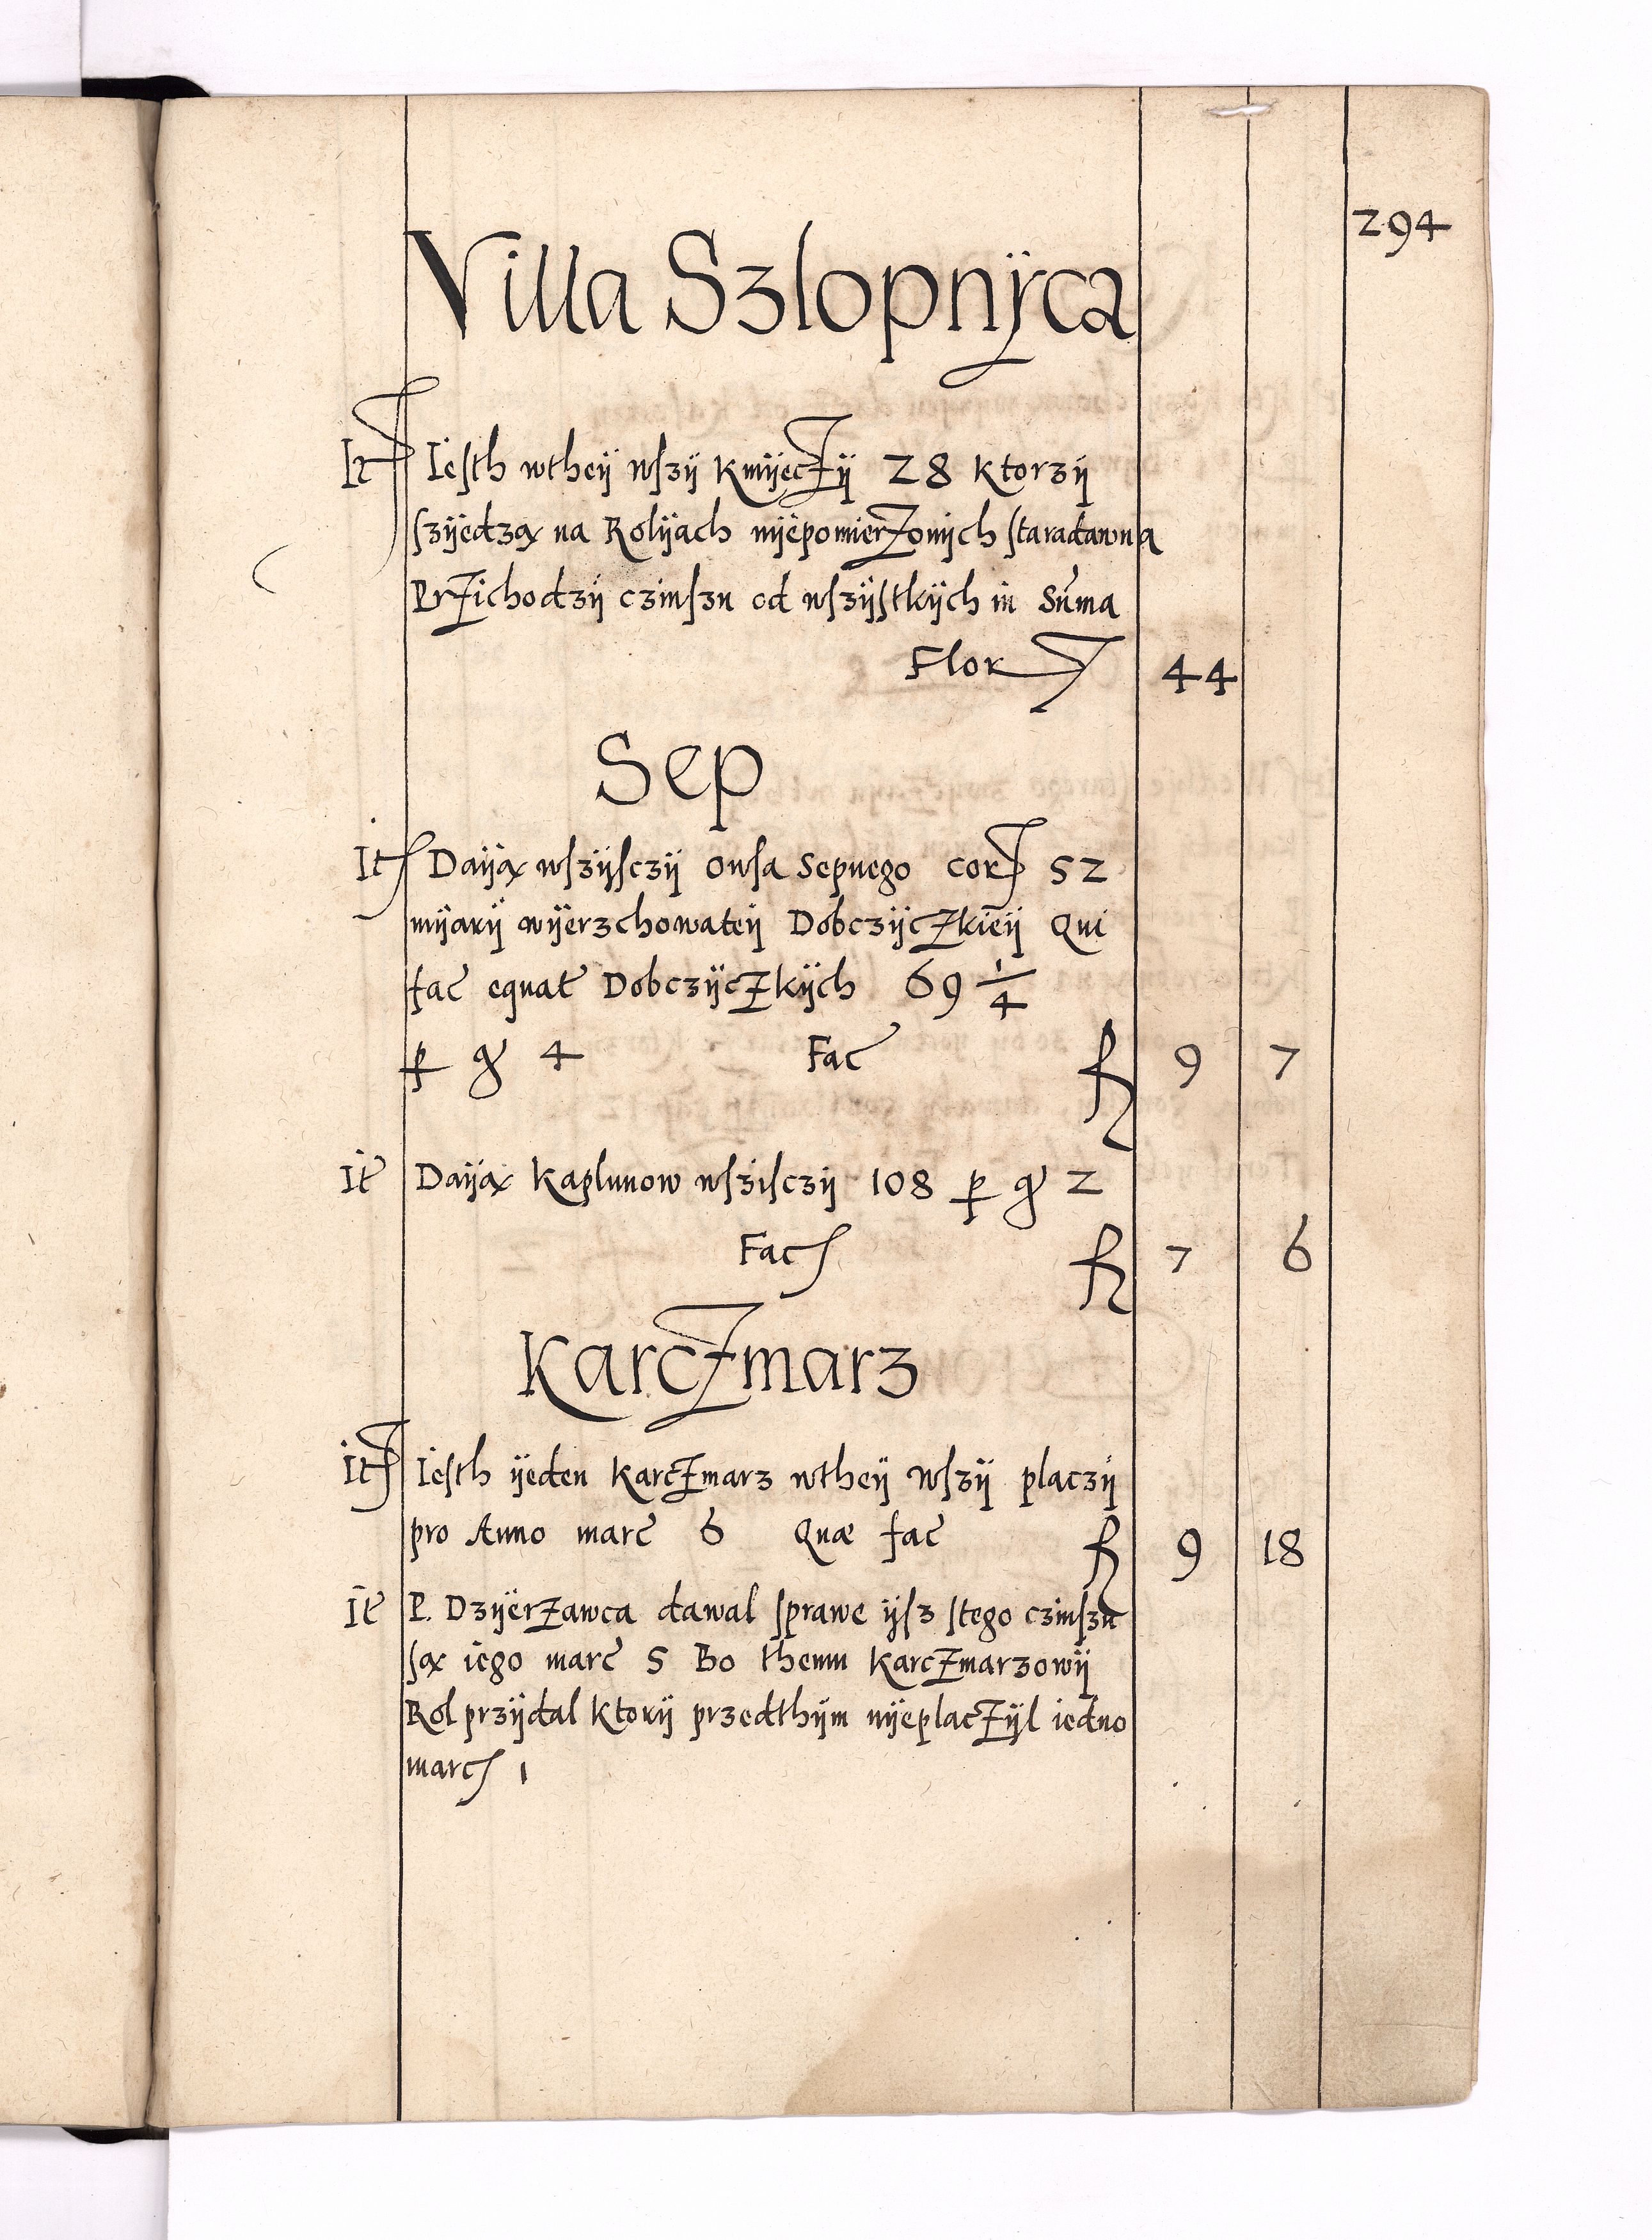 294
Villa Szlopnÿca
It Iesth wtheÿ wszÿ kmÿeczÿ 28 ktorzÿ
szÿedzą na Rolÿach nÿepomierzonÿch staradawna
Przichodzÿ czinszu od wszÿstkÿch in Suma
Flor 44
Sep
It Daÿą wszÿsczÿ owsa Sepnego cor 52
mÿarÿ wÿerzchowateÿ Dobczÿczkieÿ Qui
fac equat Dobczÿczkÿch 69 1/4
p gr 4 Fac fl 9 7
It Daÿą kaplunow wszisczÿ 108 p gr 2
Fac fl 7 6
Karczmarz
It Iesth ÿeden karczmarz wtheÿ wszÿ placzÿ
pro Anno marc 6 Quæ fac fl 9 18
It P. Dzÿerzawca dawal sprawe ÿsz stego czinszu
są iego marc 5 Bo themu karczmarzowÿ
Rol przÿdal ktorÿ przedthÿm nÿeplaczÿl iedno
marc 1